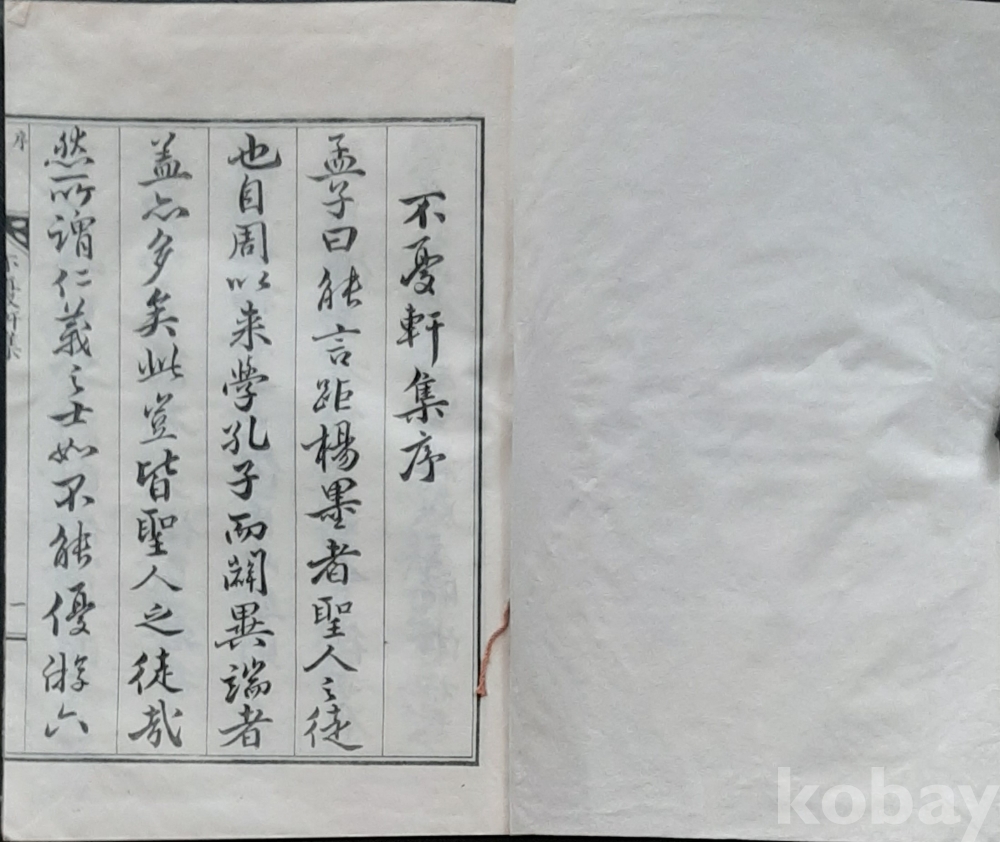 不憂軒集序
孟子曰能言距楊墨者聖人之徒
也自周以来學孔子而闢異端者
盖亦多矣此豈皆聖人之徒哉
然所謂仁義之士如不能優游六
序
不憂軒集
一
kobay